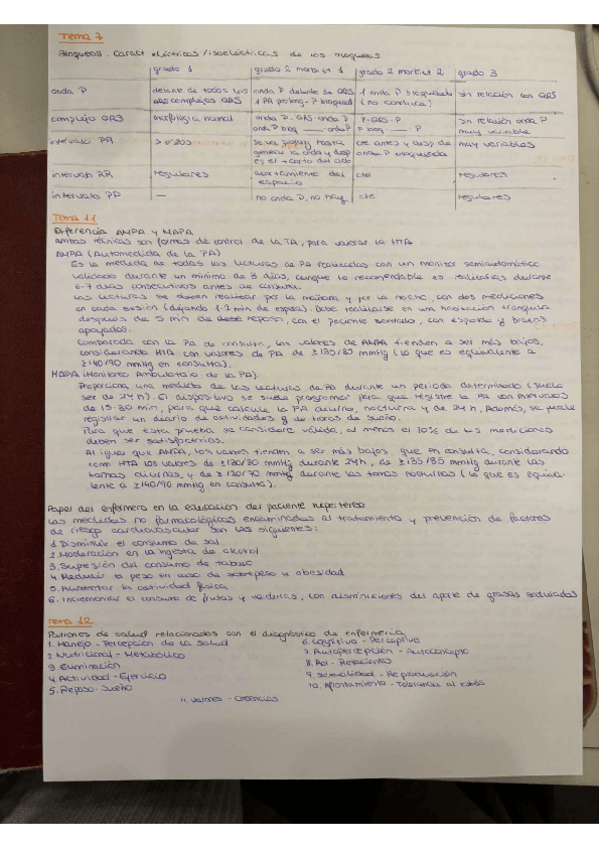 Tema 7
Bloqueos. Caract eléctricas/isoeléctricas de los bloqueos
grado 1 grado 2 mobitz 1 grado 2 mobitz 2 grado 3
onda P delante de todos los QRS complejos QRS onda P delante de QRS 1 PR prolong - P bloquead 1 onda P bloqueada (no conduce) sin relación con QRS
complejo QRS morfología normal onda P - QRS - onda P onda P bloq — onda P P-QRS-P P bloq — P sin relación onda P muy variable
intervalo PR > 0'20s se va prolong hasta generar la onda y desp es el + corto del ciclo cte antes y desp de onda P bloqueada muy variables
intervalo RR regulares acortamiento del espacio cte regulares
intervalo PP — no onda P, no hay cte regulares
Tema 11
Diferencia AMPA y MAPA
Ambas técnicas son formas de control de la TA, para valorar la HTA
AMPA (Automedida de la PA)
Es la medida de todas las lecturas de PA realizadas con un monitor semiautomático
validado durante un mínimo de 3 días, aunque lo recomendable es realizarlas durante
6-7 días consecutivos antes de consulta.
Las lecturas se deben realizar por la mañana y por la noche, con dos mediciones
en cada sesión (dejando 1-2 min de espera). Debe realizarse en una habitación tranquila
después de 5 min de reposo, con el paciente sentado, con espalda y brazos
apoyados.
Comparada con la PA de consulta, los valores de AMPA tienden a ser más bajos,
considerando HTA con valores de PA de ≥135/85 mmHg (lo que es equivalente a
≥140/90 mmHg en consulta).
MAPA (Monitoreo Ambulatorio de la PA)
Proporciona una medida de las lecturas de PA durante un periodo determinado (suele
ser de 24h). El dispositivo se suele programar para que registre la PA con intervalos
de 15-30 min, para que calcule la PA diurna, nocturna y de 24h. Además, se puede
registrar un diario de actividades y de horas de sueño.
Para que esta prueba se considere válida, al menos el 70% de las mediciones
deben ser satisfactorias.
Al igual que AMPA, los valores tienden a ser más bajos que en consulta, considerando
como HTA los valores de ≥130/80 mmHg durante 24h, de ≥135/85 mmHg durante las
tomas diurnas, y de ≥120/70 mmHg durante las tomas nocturnas (lo que es equiva-
lente a ≥140/90 mmHg en consulta).
Papel del enfermero en la educación del paciente hipertenso
Las medidas no farmacológicas encaminadas al tratamiento y prevención de factores
de riesgo cardiovascular son las siguientes:
1. Disminuir el consumo de sal
2. Moderación en la ingesta de alcohol
3. Supresión del consumo de tabaco
4. Reducir lo peso en caso de sobrepeso u obesidad
5. Aumentar la actividad física
6. Incrementar el consumo de frutas y verduras, con disminuciones del aporte de grasas saturadas
Tema 12
Patrones de salud relacionados con el diagnóstico de enfermería
1. Manejo - Percepción de la salud
2. Nutricional - Metabólico
3. Eliminación
4. Actividad - Ejercicio
5. Reposo - Sueño
6. Cognitivo - Perceptivo
7. Autopercepción - Autoconcepto
8. Rol - Relaciones
9. Sexualidad - Reproducción
10. Afrontamiento - Tolerancia al estrés
11. Valores - Creencias